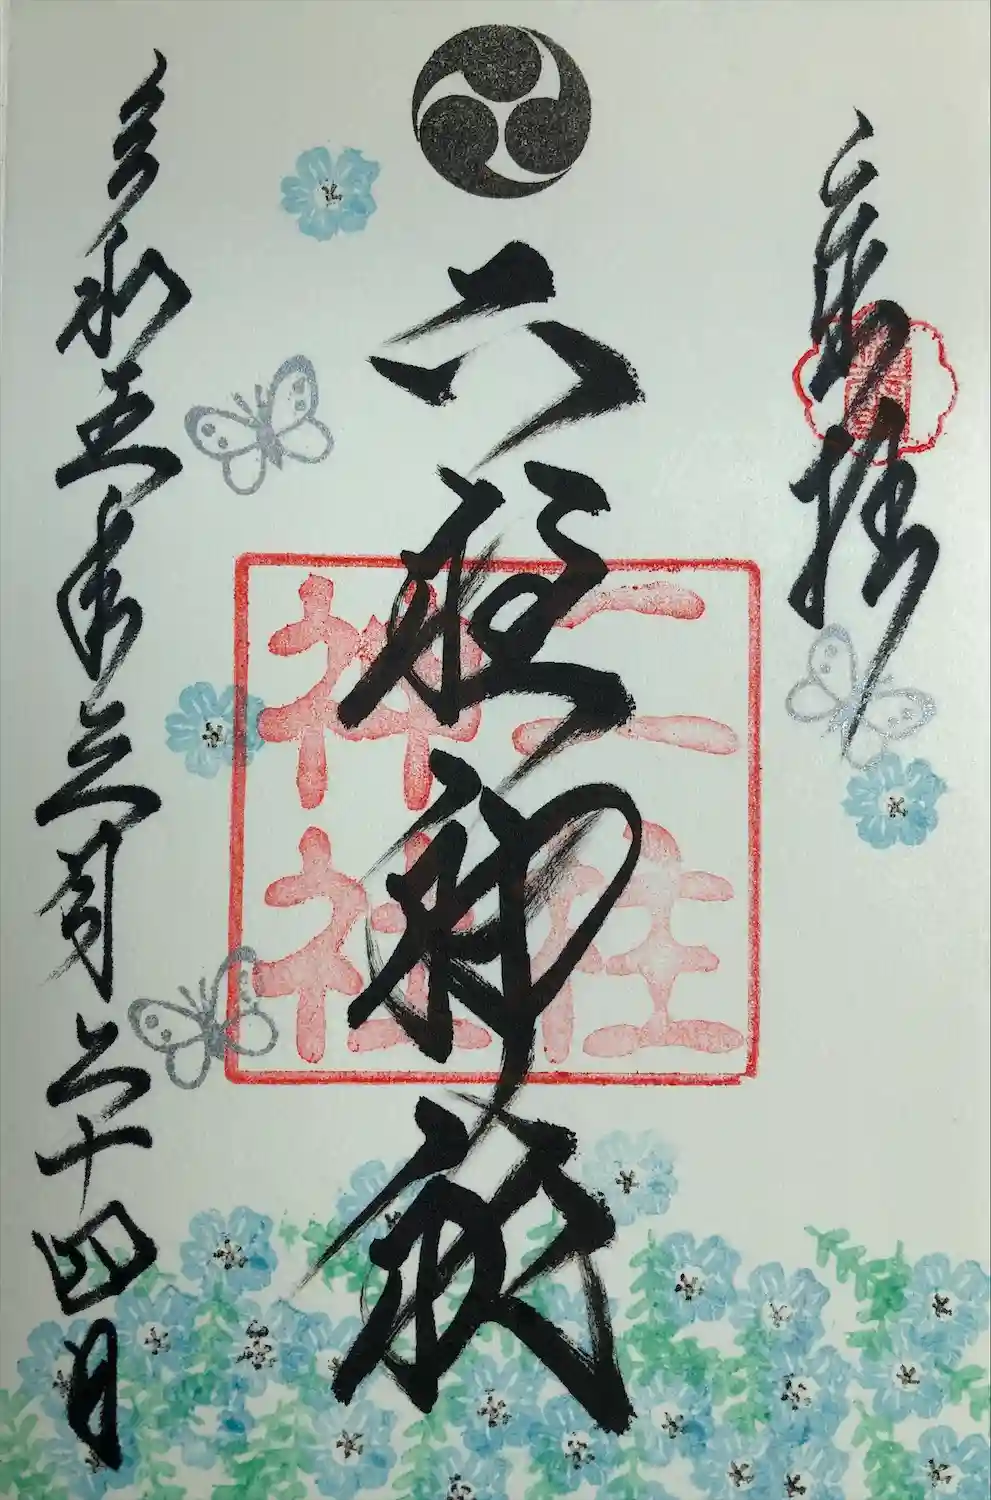 奉拝
二柱神社
二柱
神社
令和五年三月二十四日